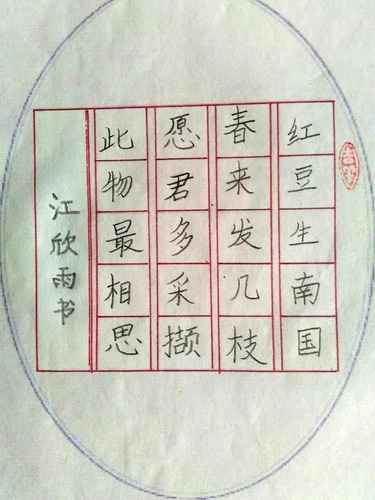 红豆生南国
春来发几枝
愿君多采撷
此物最相思
江欣雨书